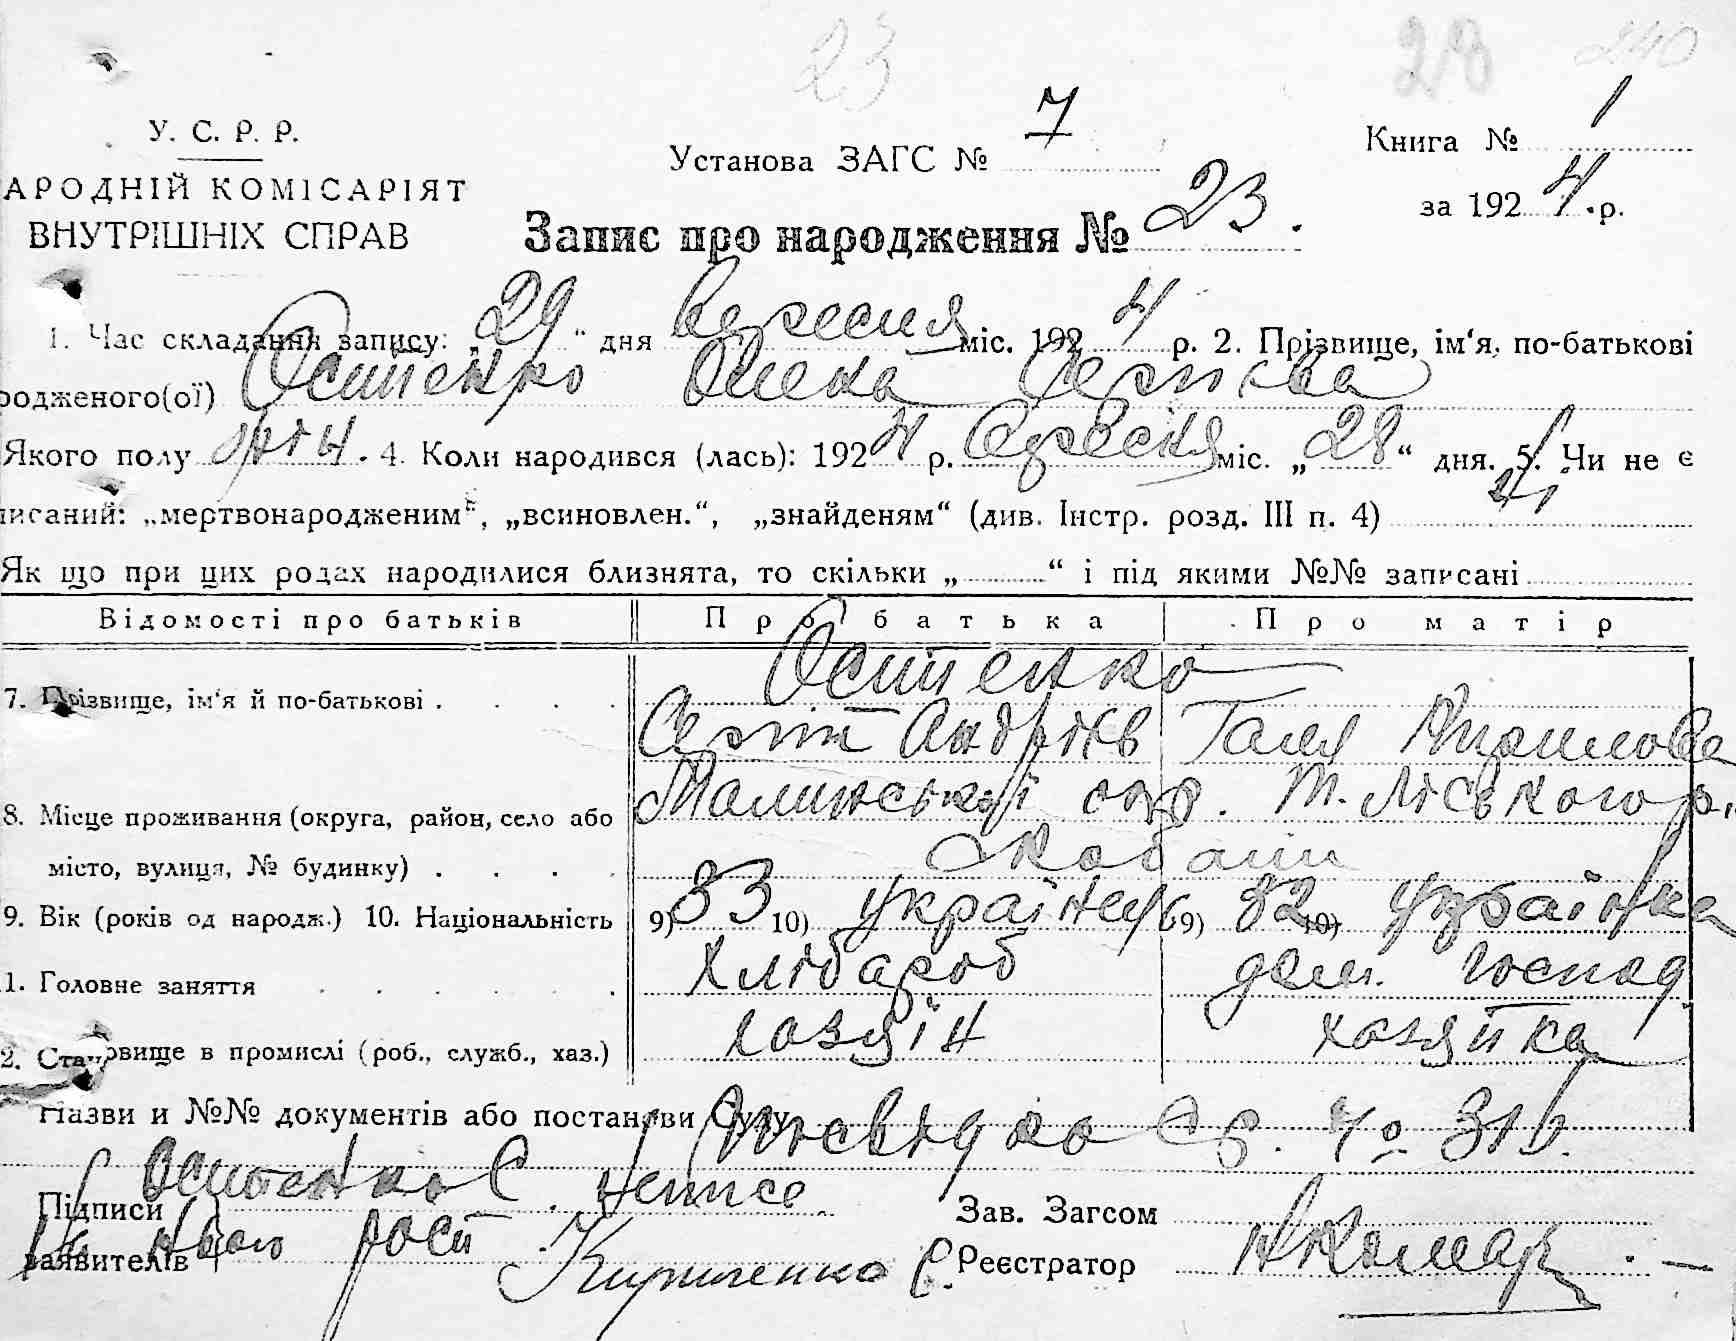 23 28 240
У. С. Р. Р.
АРОДНІЙ КОМІСАРІЯТ
ВНУТРІШНІХ СПРАВ
Установа ЗАГС № 7
Книга № 1
за 1924 р.
Запис про народження № 23.
1. Час складання запису: „29“ дня вересня міс. 1924 р. 2. Прізвище, ім‘я, по-батькові
родженого(ої) Остпенко Олека Сергієва
Якого полу жін. 4. Коли народився (лась): 1924 р. вересня міс. „28“ дня. 5. Чи не є
писаний: „мертвонародженим“, „всиновлен.“, „знайденям“ (див. Інстр. розд. III п. 4)
Як що при цих родах народилися близнята, то скільки „ “ і під якими №№ записані
Відомості про батьків Про батька Про матір
7. Прізвище, ім‘я й по-батькові . . . . Остпенко
Сергій Андріїв Галя Кирилова
8. Місце проживання (округа, район, село або Малинської окр. Ліського р.
місто, вулиця, № будинку) . . . .
9. Вік (років од народж.) 10. Національність 9) 33 10) українець 9) 32 10) українка
1. Головне заняття . . . . . . хлібароб дом. господ
2. Становище в промислі (роб., служб., хаз.) хазяїн хазяйка
Назви и №№ документів або постанови Суду Посвідка № 316.
Підписи Остпенко С. неписе Зав. Загсом
заявителів за нього росп Кириленко Реєстратор НКомар